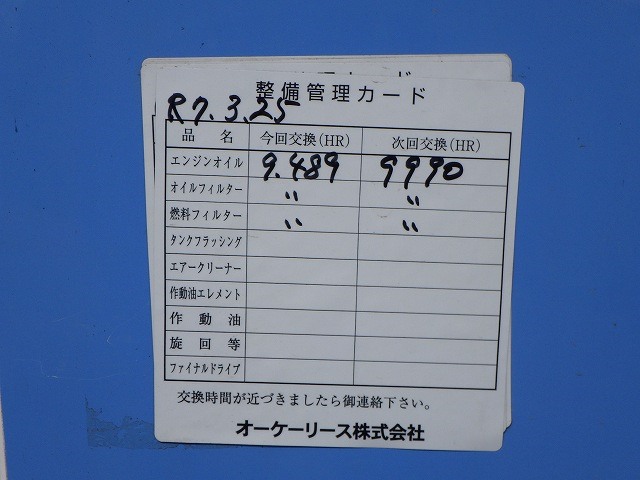 整備管理カード
R7.3.25
品名 今回交換(HR) 次回交換(HR)
エンジンオイル 9.489 9990
オイルフィルター 〃 〃
燃料フィルター 〃 〃
タンクフラッシング
エアークリーナー
作動油エレメント
作動油
旋回等
ファイナルドライブ
交換時間が近づきましたら御連絡下さい。
オーケーリース株式会社